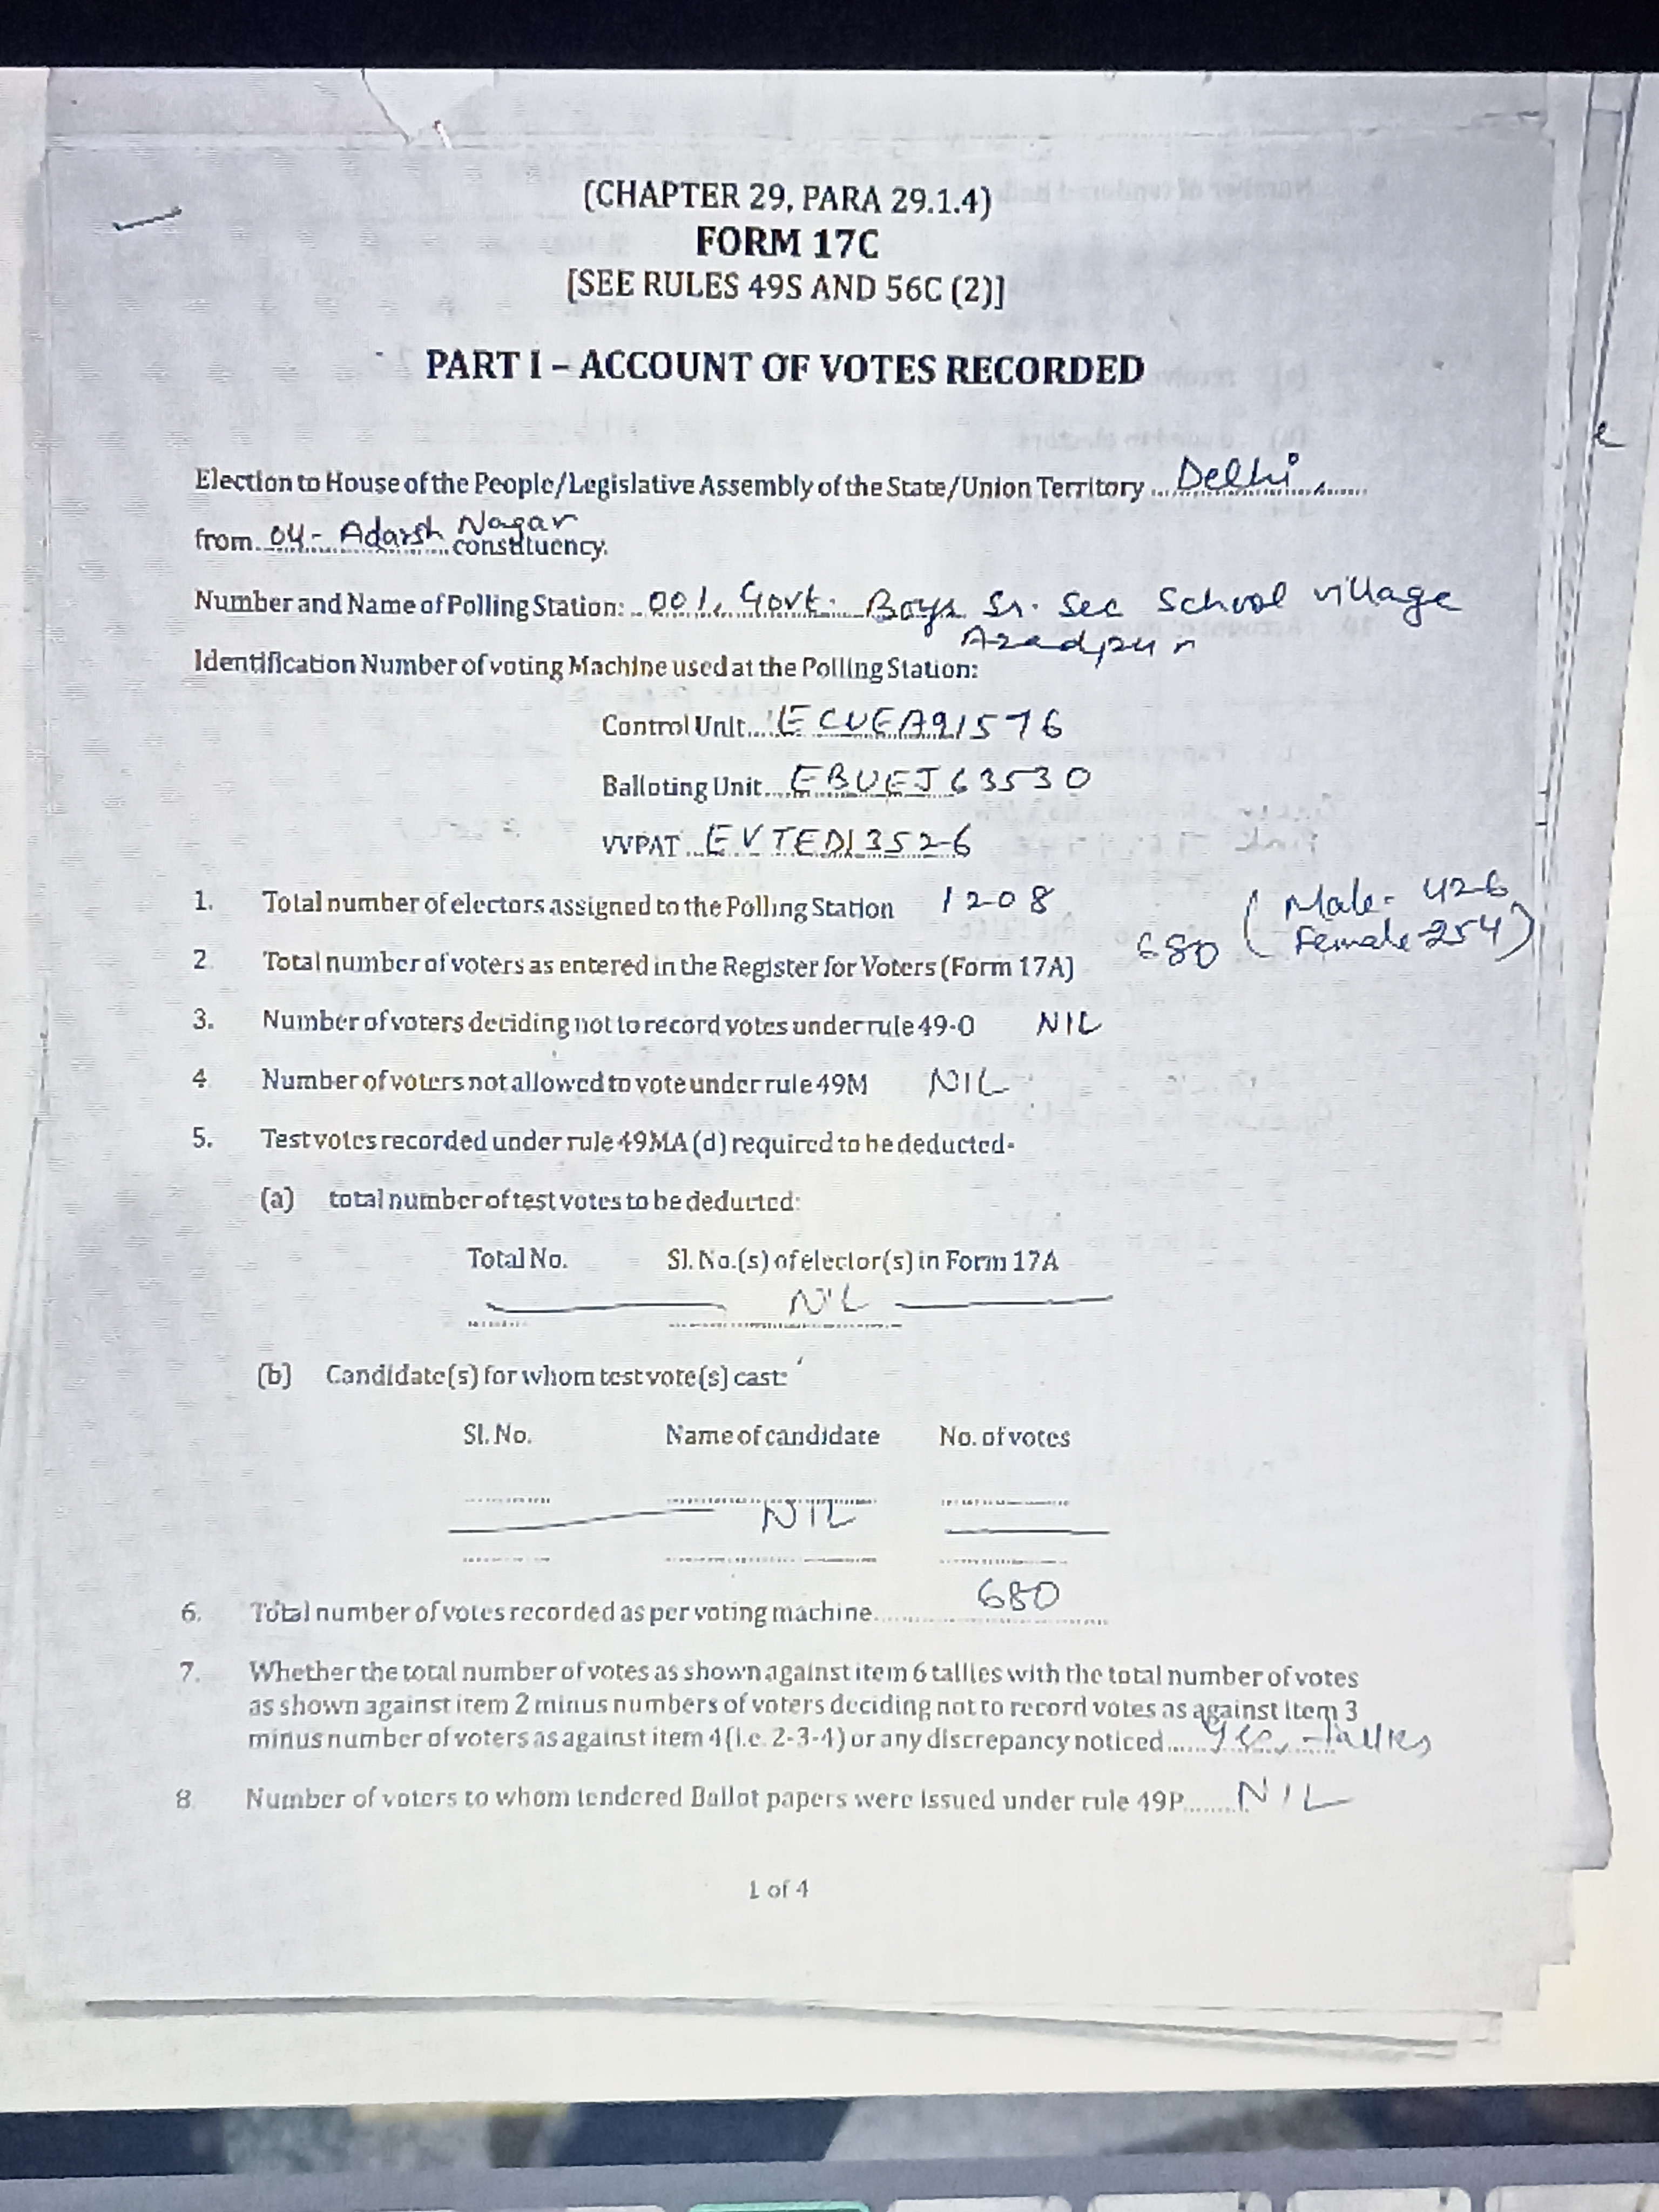 (CHAPTER 29, PARA 29.1.4)
FORM 17C
[SEE RULES 49S AND 56C (2)]
PART I – ACCOUNT OF VOTES RECORDED
Election to House of the People/Legislative Assembly of the State/Union Territory ... Delhi
from 04- Adarsh Nagar constituency.
Number and Name of Polling Station: 001, Govt. Boys Sr. Sec School village
Azadpur
Identification Number of voting Machine used at the Polling Station:
Control Unit.... ECUEA91576
Balloting Unit.... EBUEJ63530
VVPAT ... EVTED13526
1. Total number of electors assigned to the Polling Station 1208
2. Total number of voters as entered in the Register for Voters (Form 17A) 680 (Male- 426
Female-254)
3. Number of voters deciding not to record votes under rule 49-O NIL
4 Number of voters not allowed to vote under rule 49M NIL
5. Test votes recorded under rule 49MA (d) required to be deducted-
(a) total number of test votes to be deducted:
Total No. Sl. No.(s) of elector(s) in Form 17A
NIL
(b) Candidate(s) for whom test vote(s) cast:
Sl. No. Name of candidate No. of votes
NIL
6. Total number of votes recorded as per voting machine.... 680
7. Whether the total number of votes as shown against item 6 tallies with the total number of votes
as shown against item 2 minus numbers of voters deciding not to record votes as against item 3
minus number of voters as against item 4 (i.e. 2-3-4) or any discrepancy noticed...... Yes, Tallies
8 Number of voters to whom tendered Ballot papers were issued under rule 49P....... NIL
1 of 4